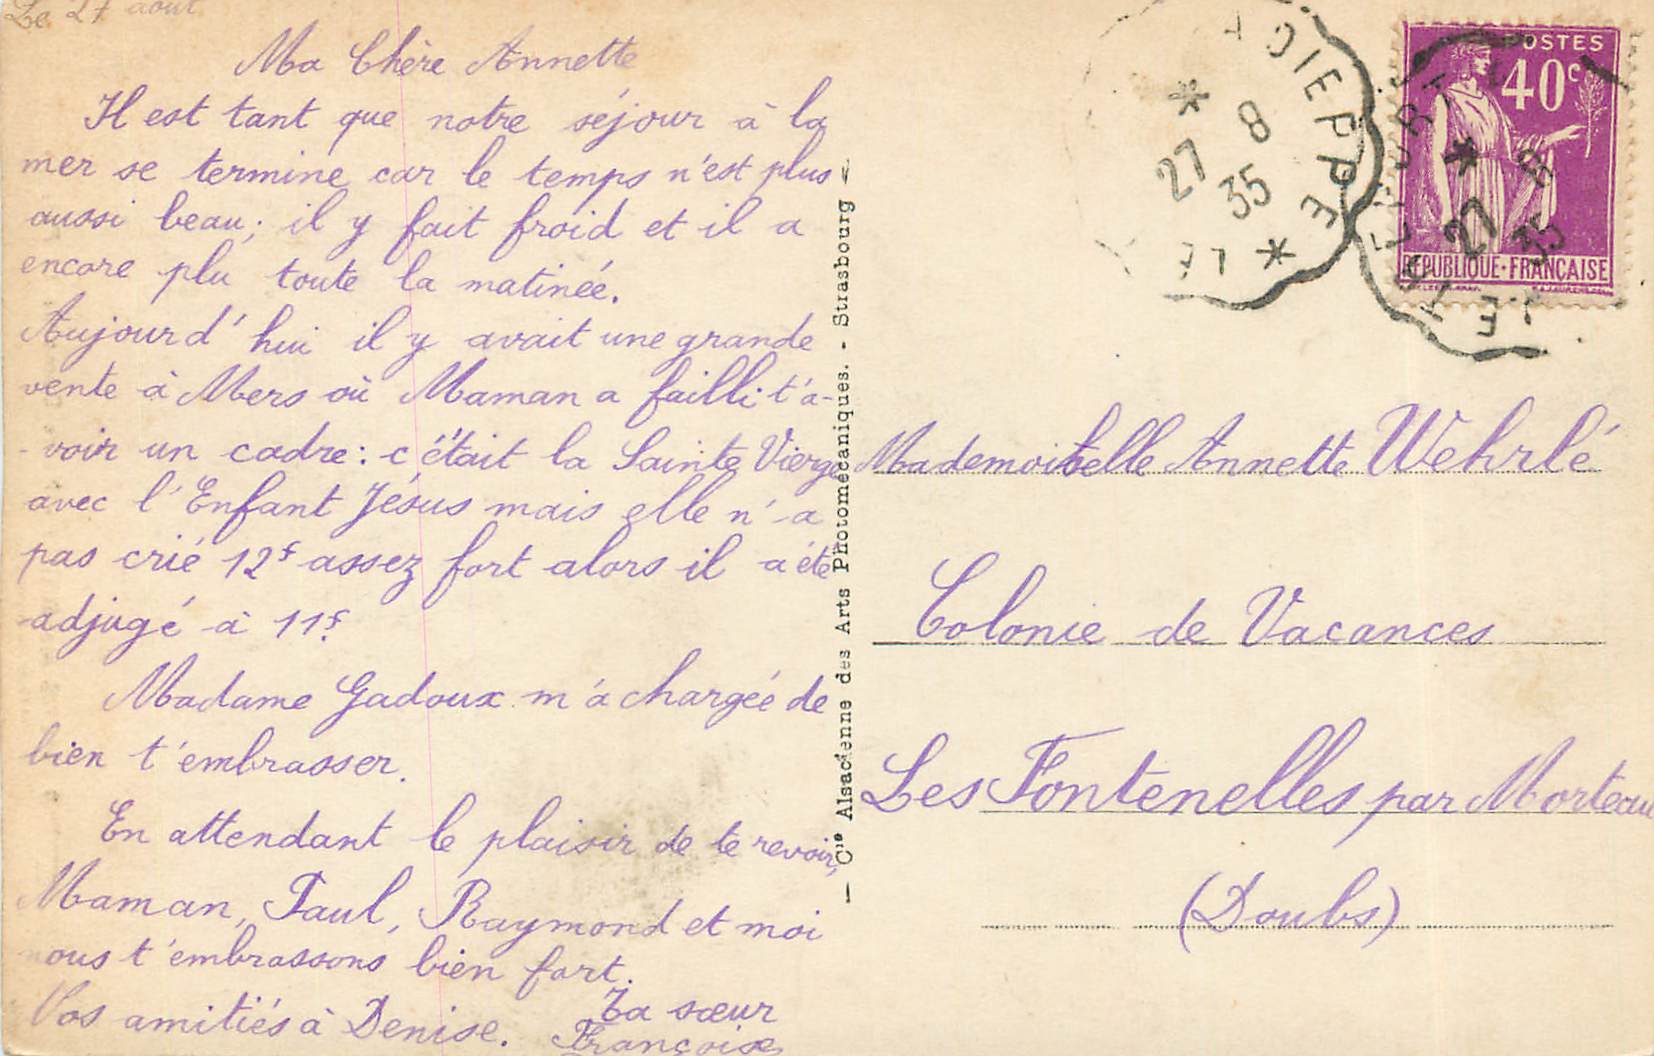 Le 27 aout
Ma Chère Annette
Il est tant que notre séjour à la
mer se termine car le temps n'est plus
aussi beau; il y fait froid et il a
encore plu toute la matinée.
Aujourd'hui il y avait une grande
vente à Mers où Maman a failli t'a-
-voir un cadre: c'était la Sainte Vierge
avec l'Enfant Jésus mais elle n'a
pas crié 12f assez fort alors il a été
adjugé à 11f.
Madame Gadoux m'a chargée de
bien t'embrasser.
En attendant le plaisir de te revoir,
Maman, Paul, Raymond et moi
nous t'embrassons bien fort.
Vos amitiés à Denise.
Ta sœur
Françoise
— Cie Alsacienne des Arts Photomécaniques. - Strasbourg —
POSTES
40c
REPUBLIQUE·FRANÇAISE
DIEPPE
* 27 8 35 *
LE
* 27 8 35
LE
Mademoiselle Annette Wehrlé
Colonie de Vacances
Les Fontenelles par Morteau
(Doubs)